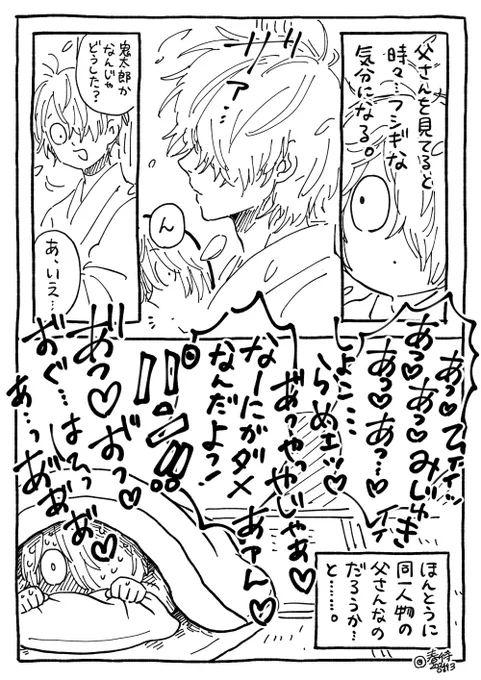 父さんを見てると
時々…フシギな
気分になる。
ア…
ん
鬼太郎か
なんじゃ
どうした?
あ、いえ…
あっ♡
あっ♡あっ♡みじゅき
あっ♡あっ…♡
しょこ…
らめェッ♡
あっやっやじゃぁ♡
なーにがダメ
なんだよっ!
あァん♡
あっ♡おっ♡
おぐ…はひっ
あ…っあ゛あ゛あ゛♡
ほんとうに
同一人物の
父さんなの
だろうか…
と……。